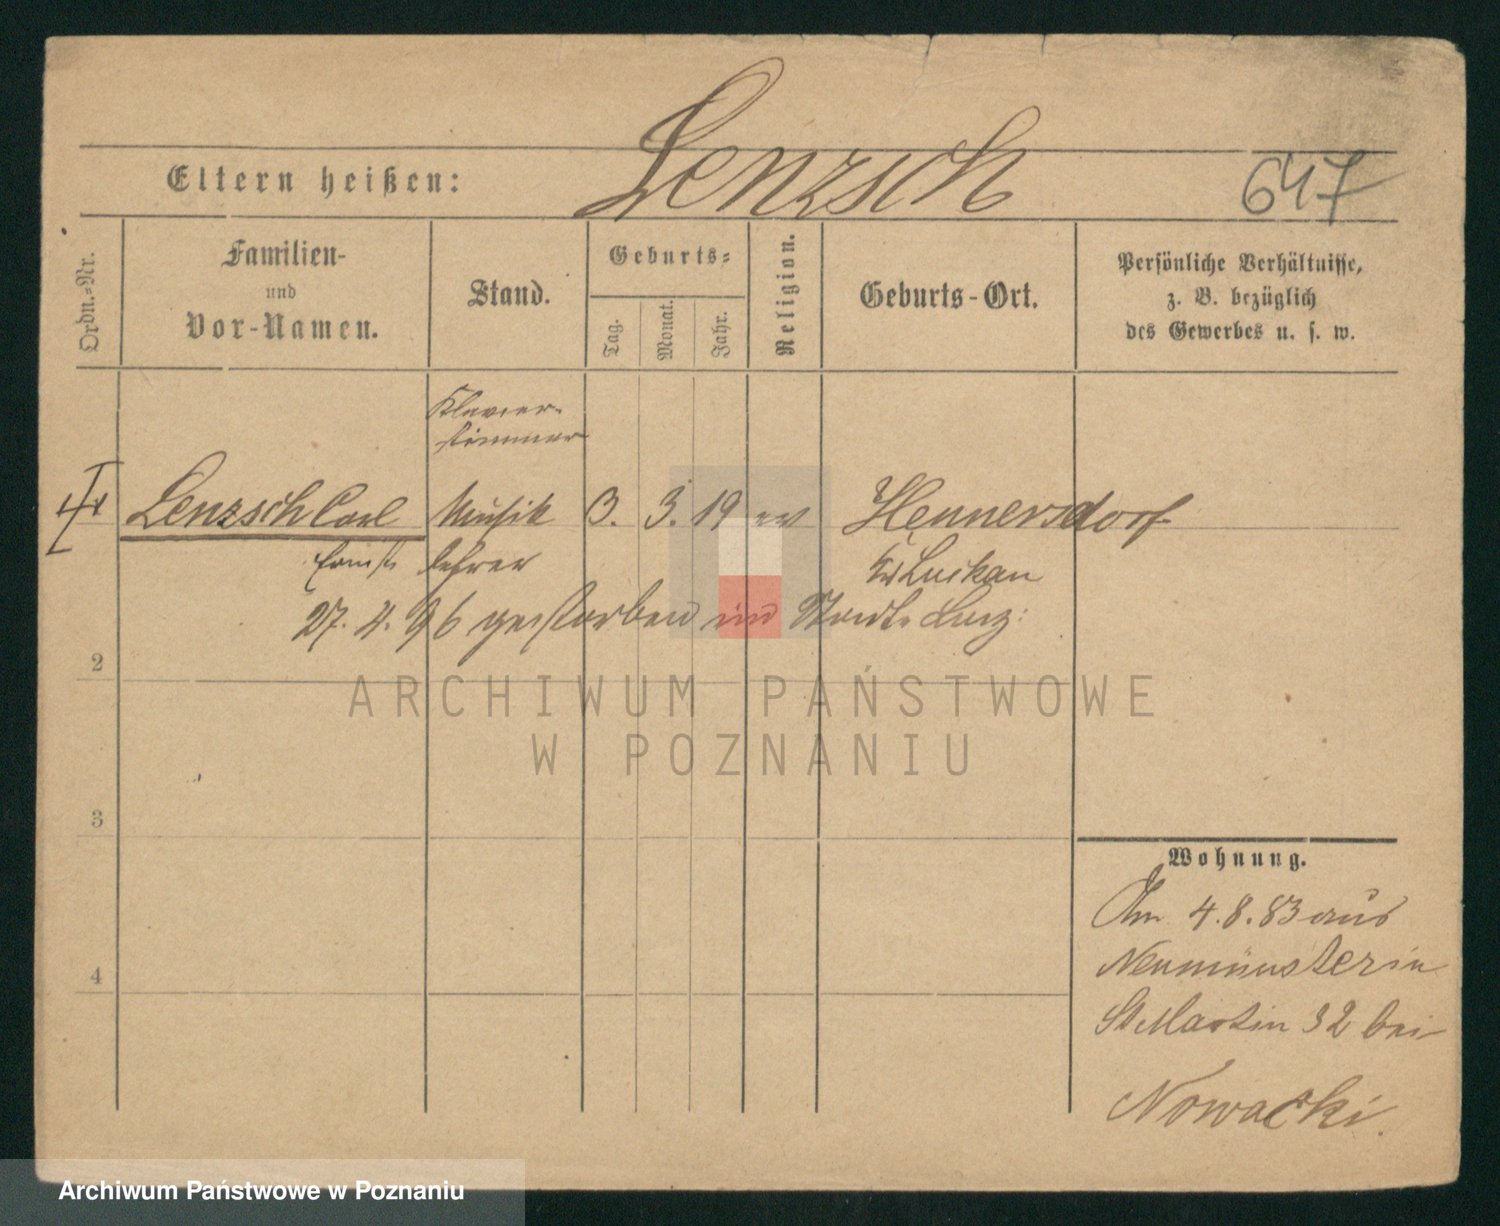 Lenzsch
Eltern heißen:
647
Ordn.-Nr.
Familien-
und
Vor-Namen.
Stand.
Geburts-
Tag.
Monat.
Jahr.
Religion.
Geburts-Ort.
Persönliche Verhältnisse,
z. B. bezüglich
des Gewerbes u. s. w.
Klavier-
stimmer
Lenzsch Carl Musik 3. 3. 19 ev Hennersdorf
Ernst lehrer Kr Luckau
27. 4. 96 gestorben im Stadt. Laz:
2
ARCHIWUM PAŃSTWOWE
W POZNANIU
3
Wohnung.
Am 4.8.83 aus
Neumünster in
St Martin 32 bei
4
Nowacki.
Archiwum Państwowe w Poznaniu